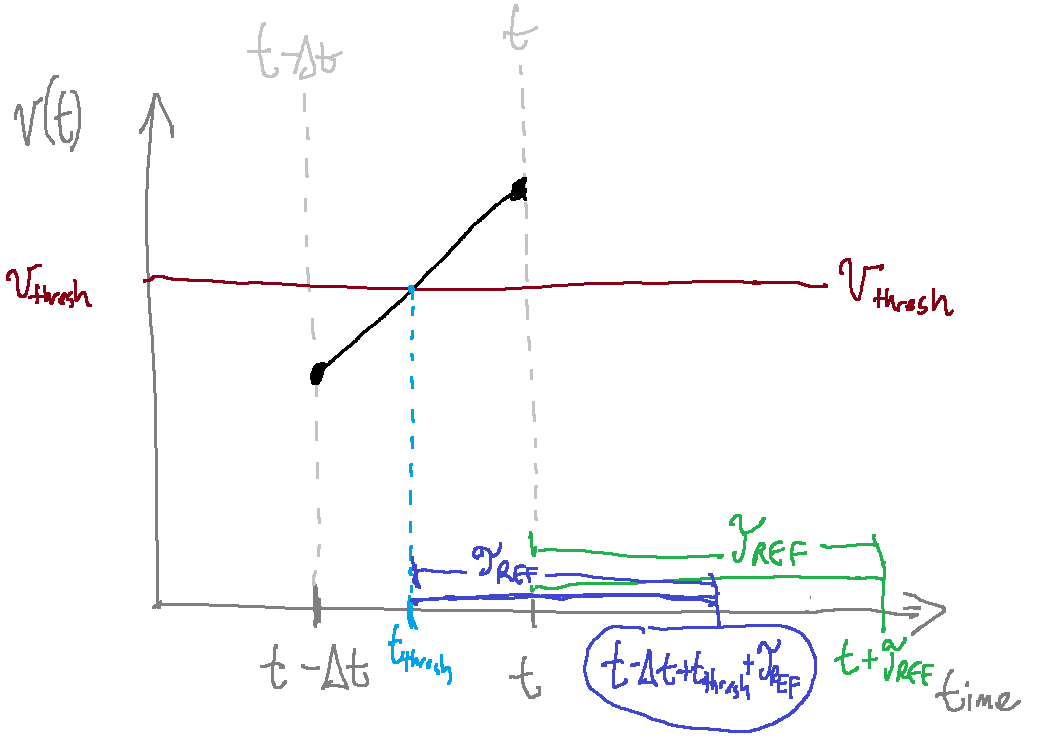 t-Δt
t
v(t)
Vthresh
Vthresh
τREF
τREF
t-Δt
tthresh
t
t-Δt+tthresh+τREF
t+τREF
time